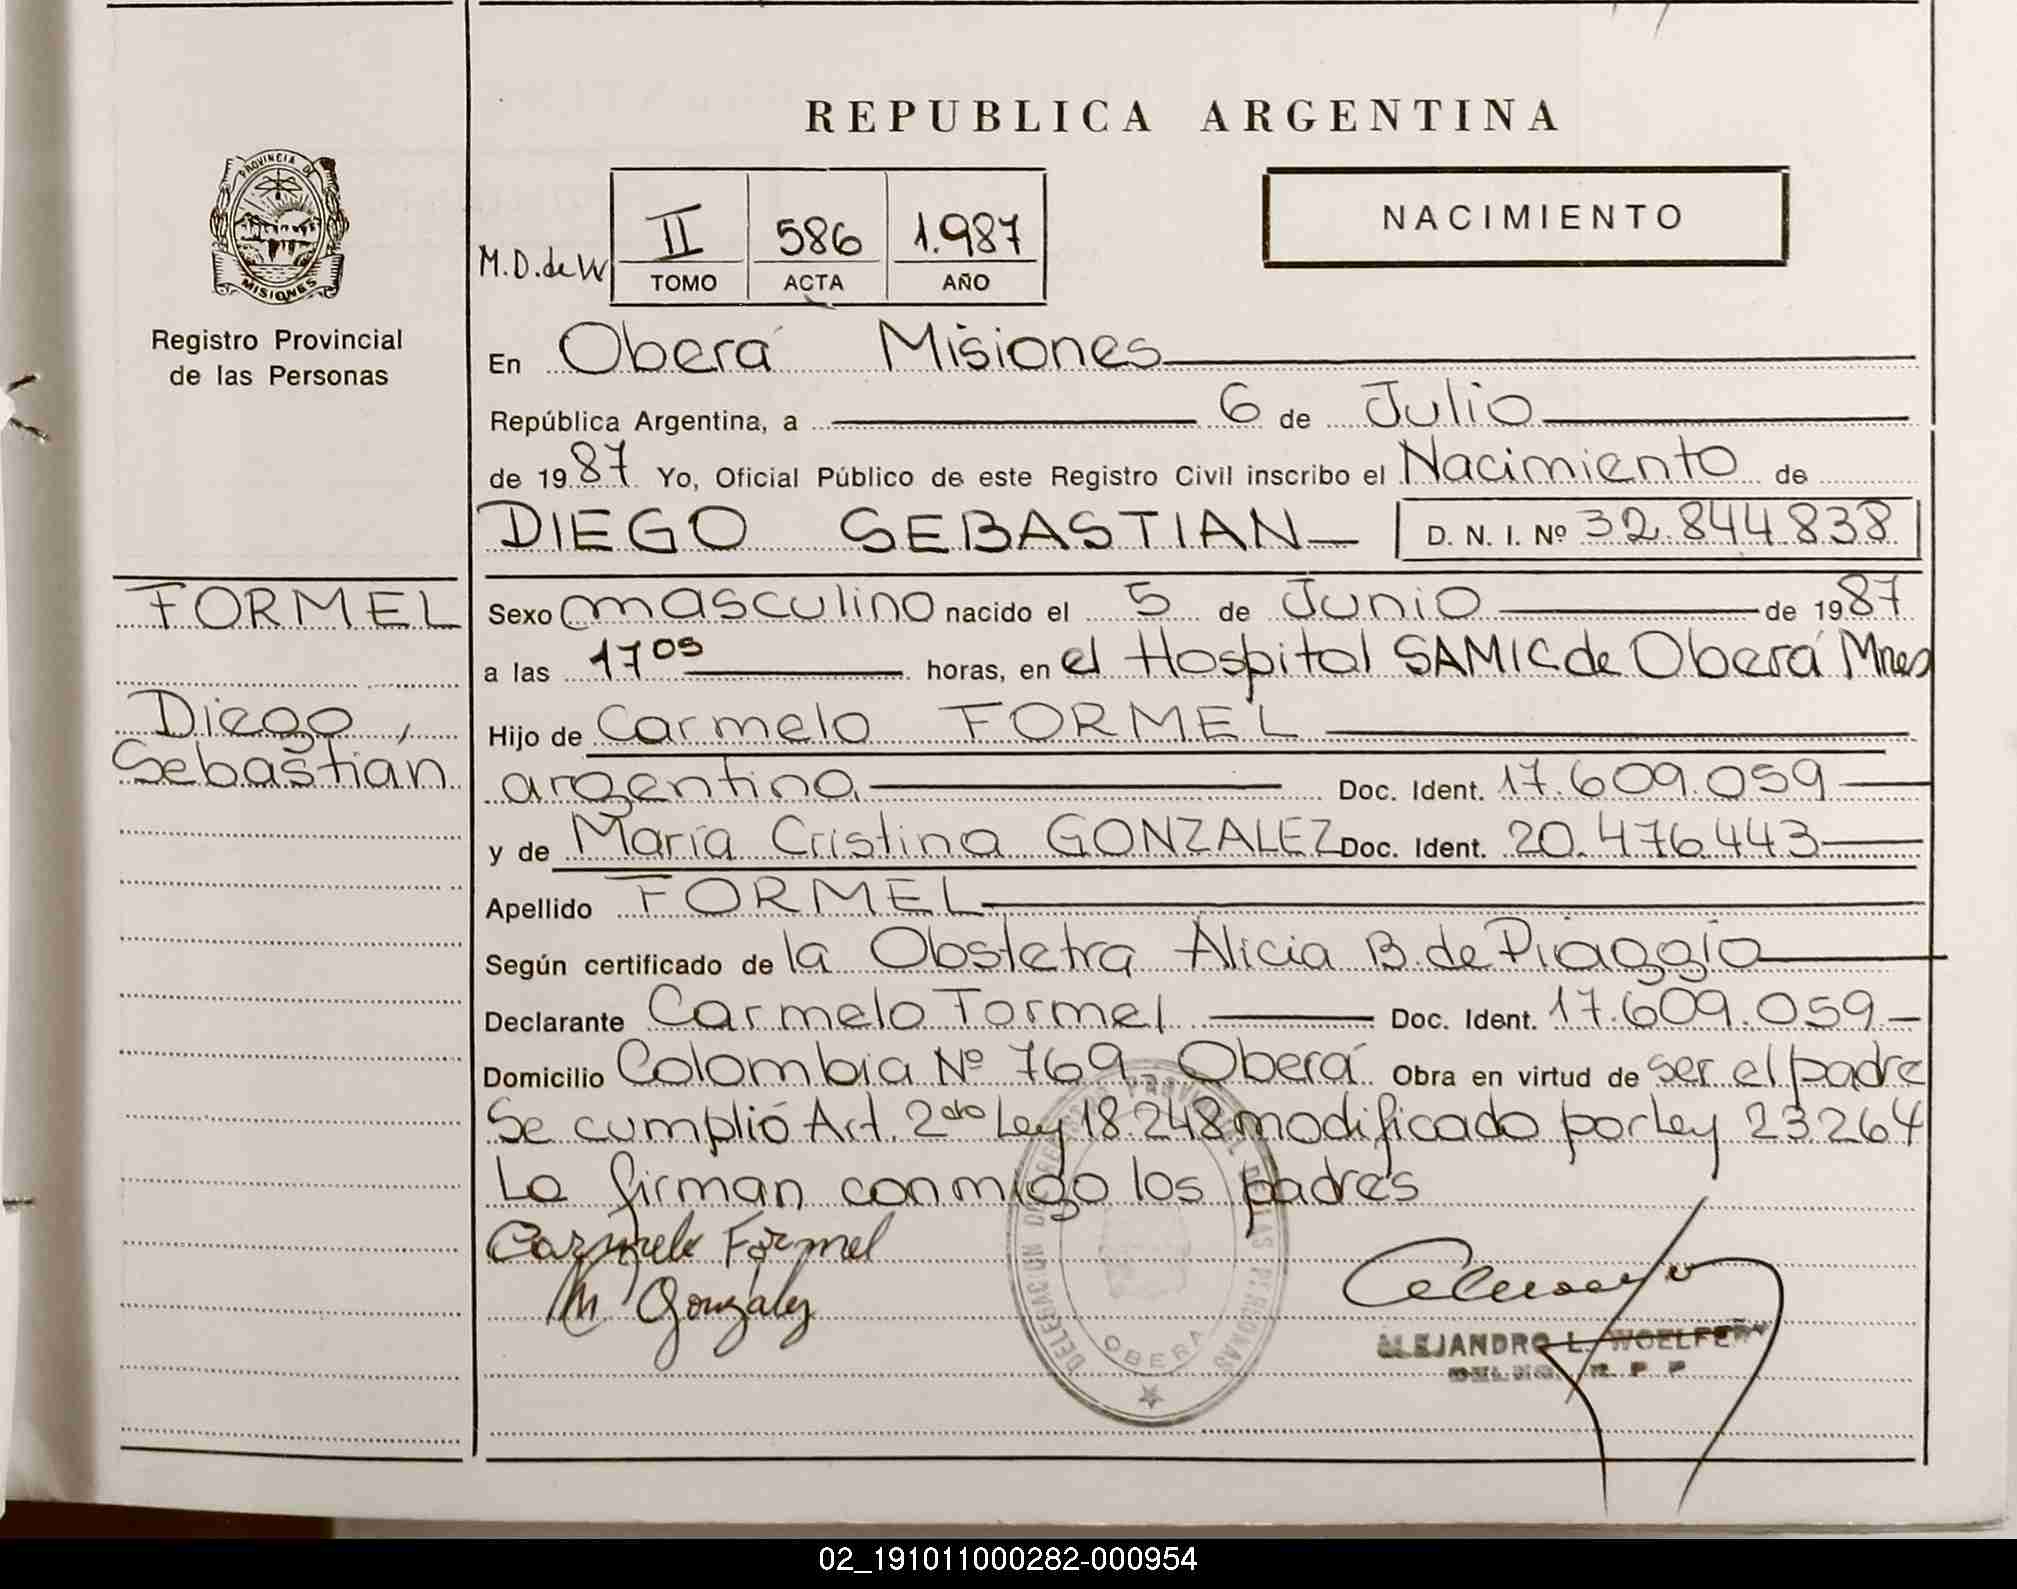 REPUBLICA ARGENTINA
PROVINCIA DE
MISIONES
Registro Provincial
de las Personas
M.D.de W
II 586 1.987
TOMO ACTA AÑO
NACIMIENTO
En Oberá Misiones
República Argentina, a 6 de Julio
de 1987 Yo, Oficial Público de este Registro Civil inscribo el Nacimiento de
DIEGO SEBASTIAN D. N. I. Nº 32.844.838
FORMEL
Diego,
Sebastián
Sexo masculino nacido el 5 de Junio de 1987
a las 17 05 horas, en el Hospital SAMIC de Oberá Mnes
Hijo de Carmelo FORMEL
argentino Doc. Ident. 17.609.059
y de María Cristina GONZALEZ Doc. Ident. 20.476.443
Apellido FORMEL
Según certificado de la Obstetra Alicia B. de Piaggio
Declarante Carmelo Formel Doc. Ident. 17.609.059
Domicilio Colombia Nº 769 Oberá Obra en virtud de ser el padre
Se cumplió Art. 2do Ley 18.248 modificado por Ley 23264
La firman conmigo los padres
Carmelo Formel
M Gonzalez
DELEGACION DE REGISTRO PROVINCIAL DE LAS PERSONAS
OBERA
ALEJANDRO L.
R. P. P
02_191011000282-000954